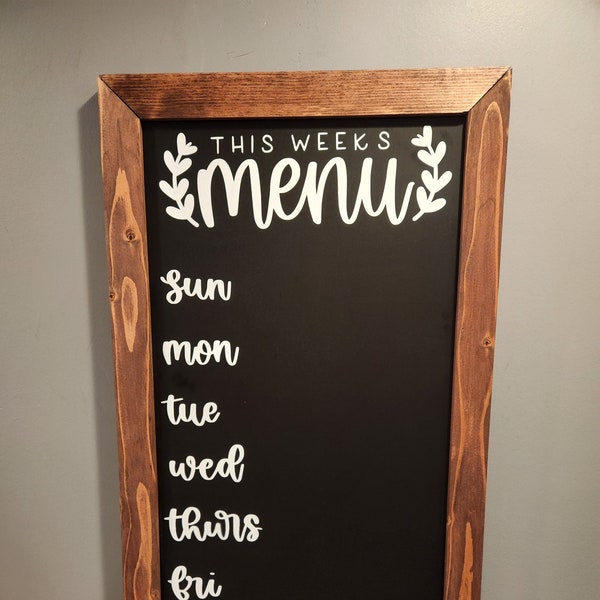 THIS WEEKS
menu
sun
mon
tue
wed
thurs
fri